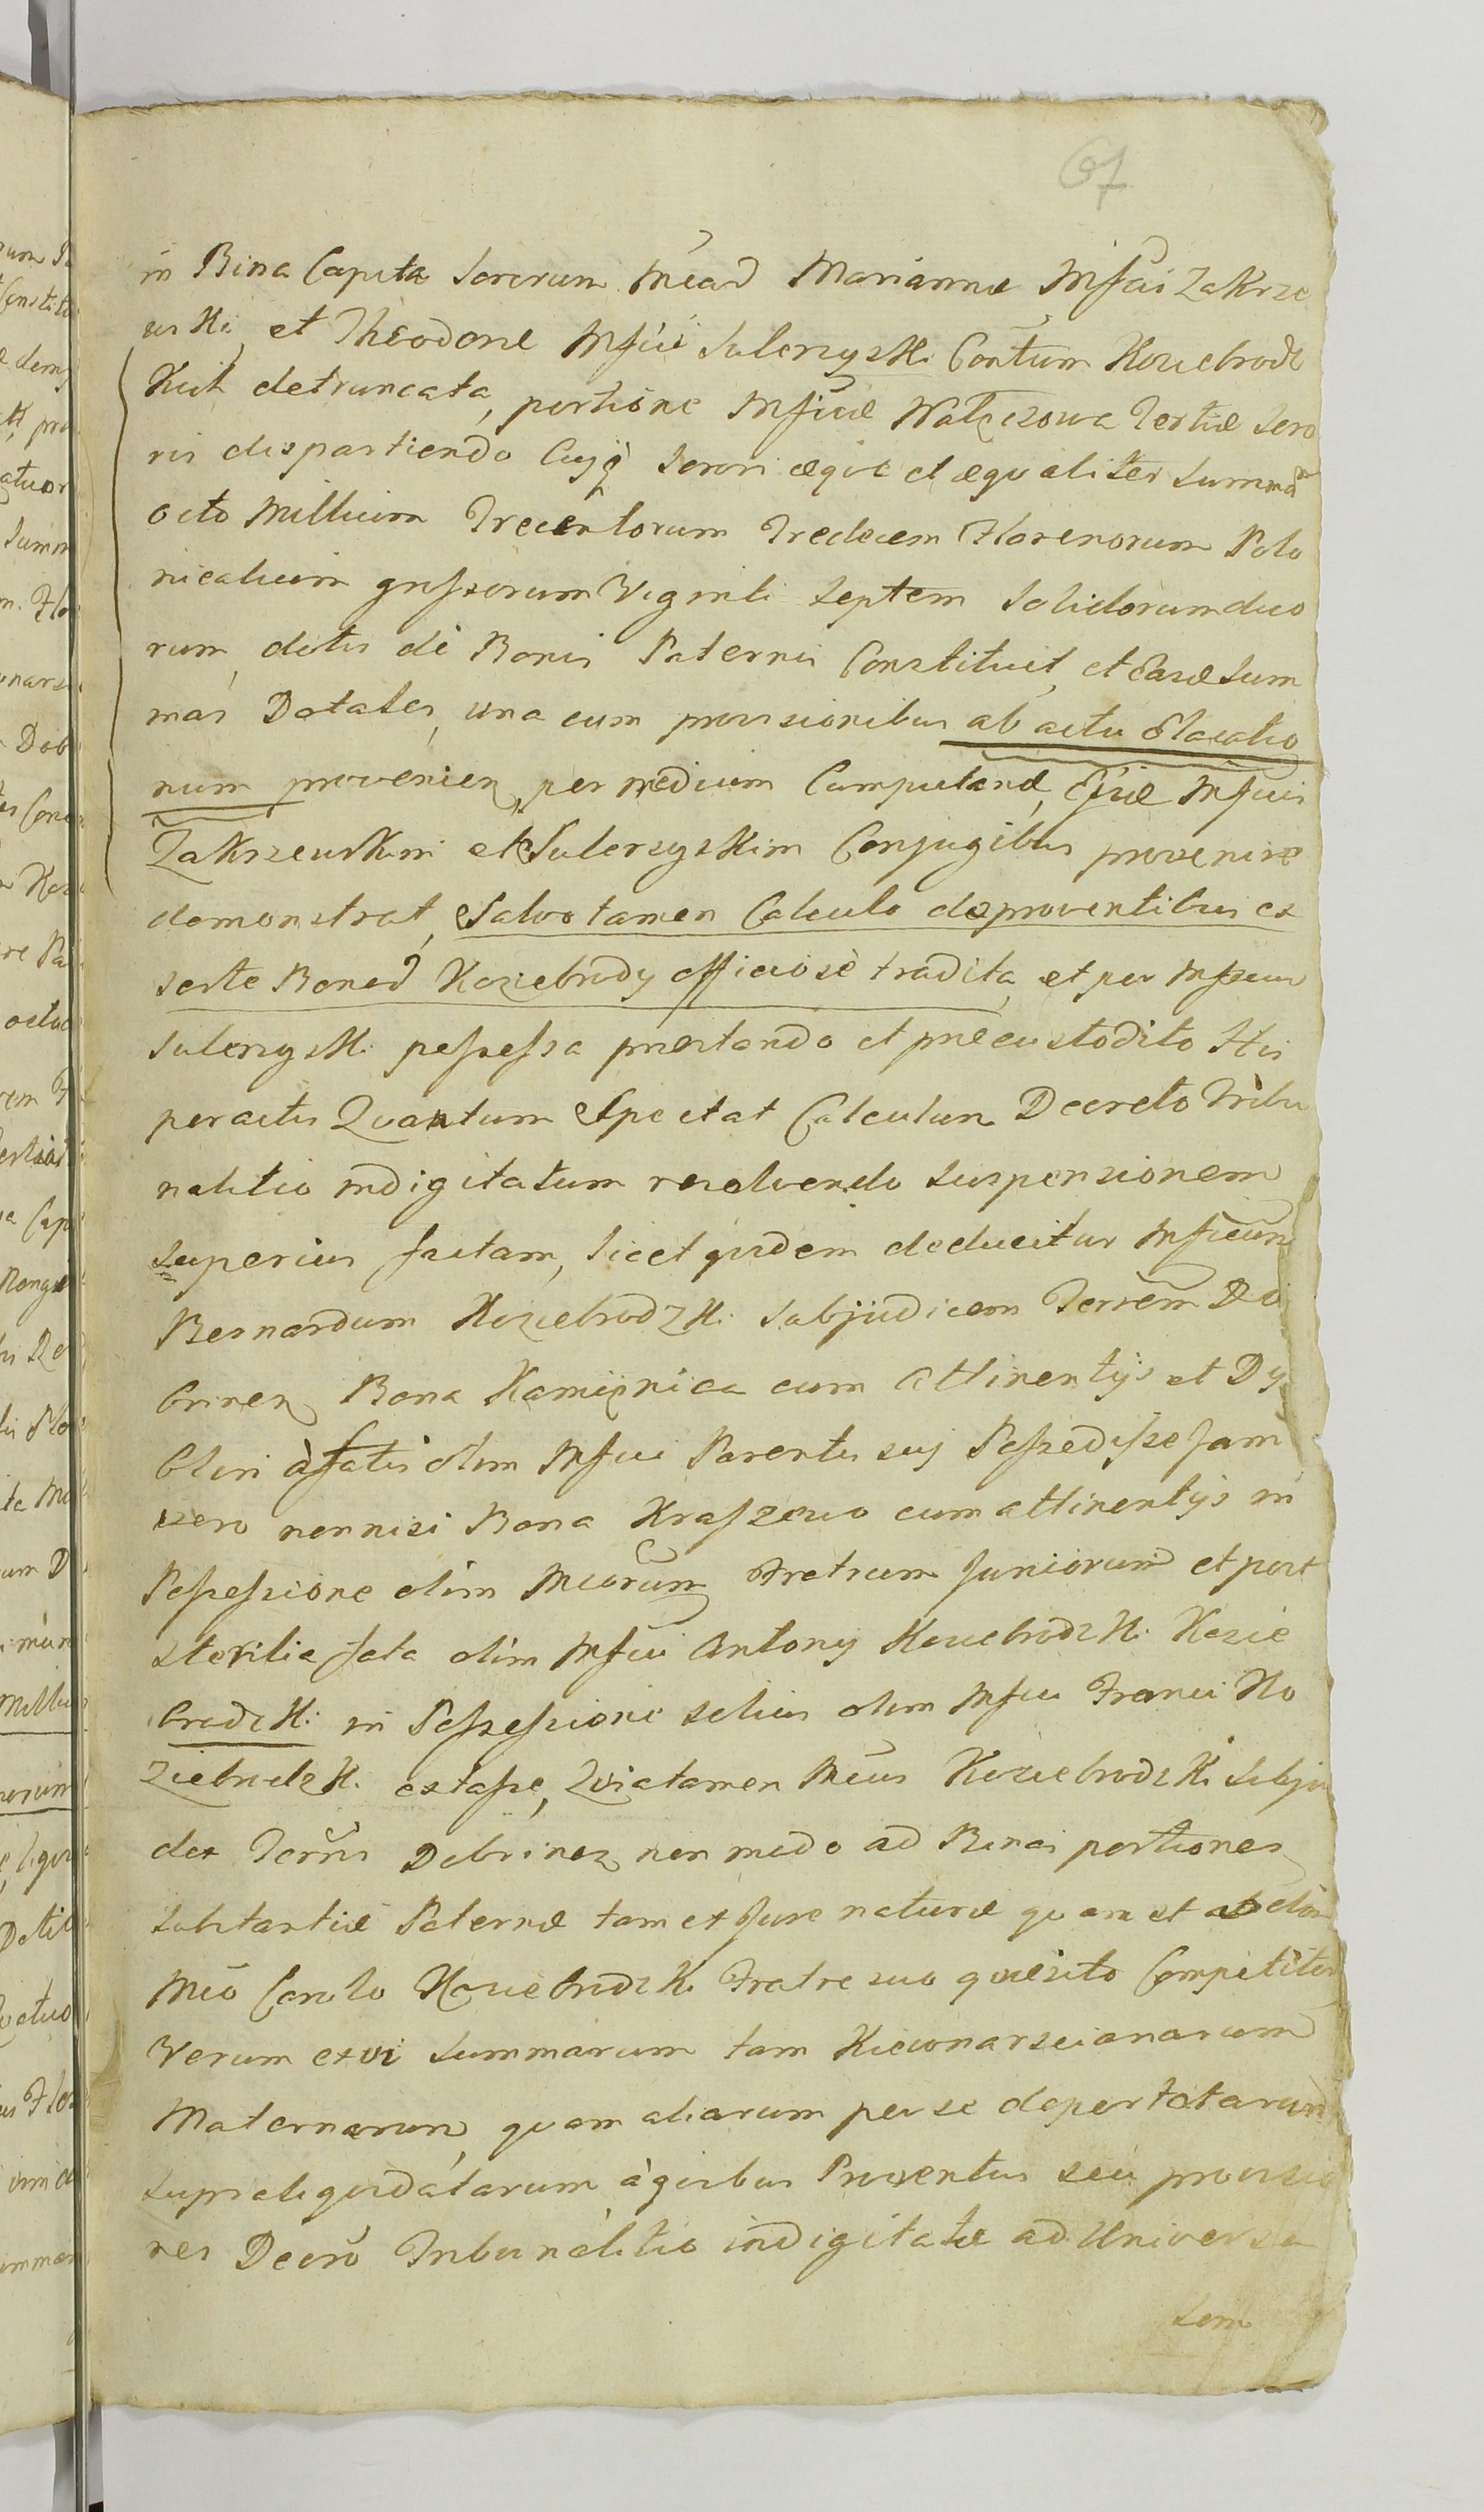 67
in Bina Capita Sororum Mear̃ Mariannæ Mfcæ Zakrze
wski, et Theodoræ Mfcæ Sulerzyski Conŕtum Koziebrodz
kich detruncata, portione Mfcæ Wałęzowa Tertiæ Soro
ris dispartiendo Cujq̀ Sorori æque et æqualiter Summã
octo Millium Trecentorum Tredecem Florenorum Polo
nicalium grossorum Viginti Septem Solidorum duo
rum, dotis dè Bonis Paternis Constituit, et Easdæ Sum
mas Dotales, una cum provisionibus ab actu Elocatio
num provenien, per medium Computandæ, Mfcis
Zakrzewskim et Sulerzyskim Conjugibus provenire
demonstrat, Salvo tamen Calculo de proventibus ex
sorte Bonor̃ Koziebrody officiosè tradita, et per Mfcum
Sulerzyski possessa præstando et præcustodito His
peractis Quantum Spectat Calculum Decreto Tribu
nalitio indigitatum resolvendo Suspensionem
superius factam, licet quidem deducitur Mficum
Bernardum Koziebrodzki Subjudicem Terrem̃ Do
brinen Bona Kamięnica cum attinentijs et Dy
blin à fatis olim Mfci Parentis suj Possedisse Jam
vero nonnisi Bona Kraszewo cum attinentijs in
Possessione olim Mcorum̃ Fratrum Juniorum et post
sterilia fata olim Mfci Antonij Koziebrodzki Kozie
brodzki in Possessione Solius olim Mfci Franci Ko
ziebrodzki extasse, Quia tamen Mcus Koziebrodzki Subju
dex Terrs̃ Dobrinen non modo ad Binas portiones
substantiæ Paternæ tam ex Jure naturæ quam et ab olim
Mco Carolo Koziebrodzki Fratre suo quæsito Competites
Verum ex vi Summarum tam Kiewonarscianarum
Maternarum, quam aliarum per se deportatarum
supraliquidatarum àquibus Proventus seu provisio
nes Decrõ Tribunalitio indigitatæ ad Universa
lem